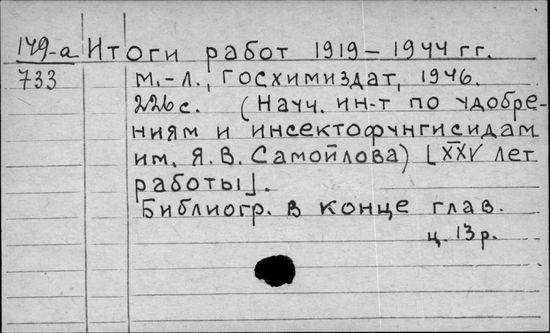 149-а Итоги работ 1919-1944 гг.
733 М.-Л., Госхимиздат, 1946.
226с. (Науч. ин-т по удобре-
ниям и инсектофунгисидам
им. Я. В. Самойлова) [XXV лет
работы].
Библиогр. в конце глав.
ц. 13 р.